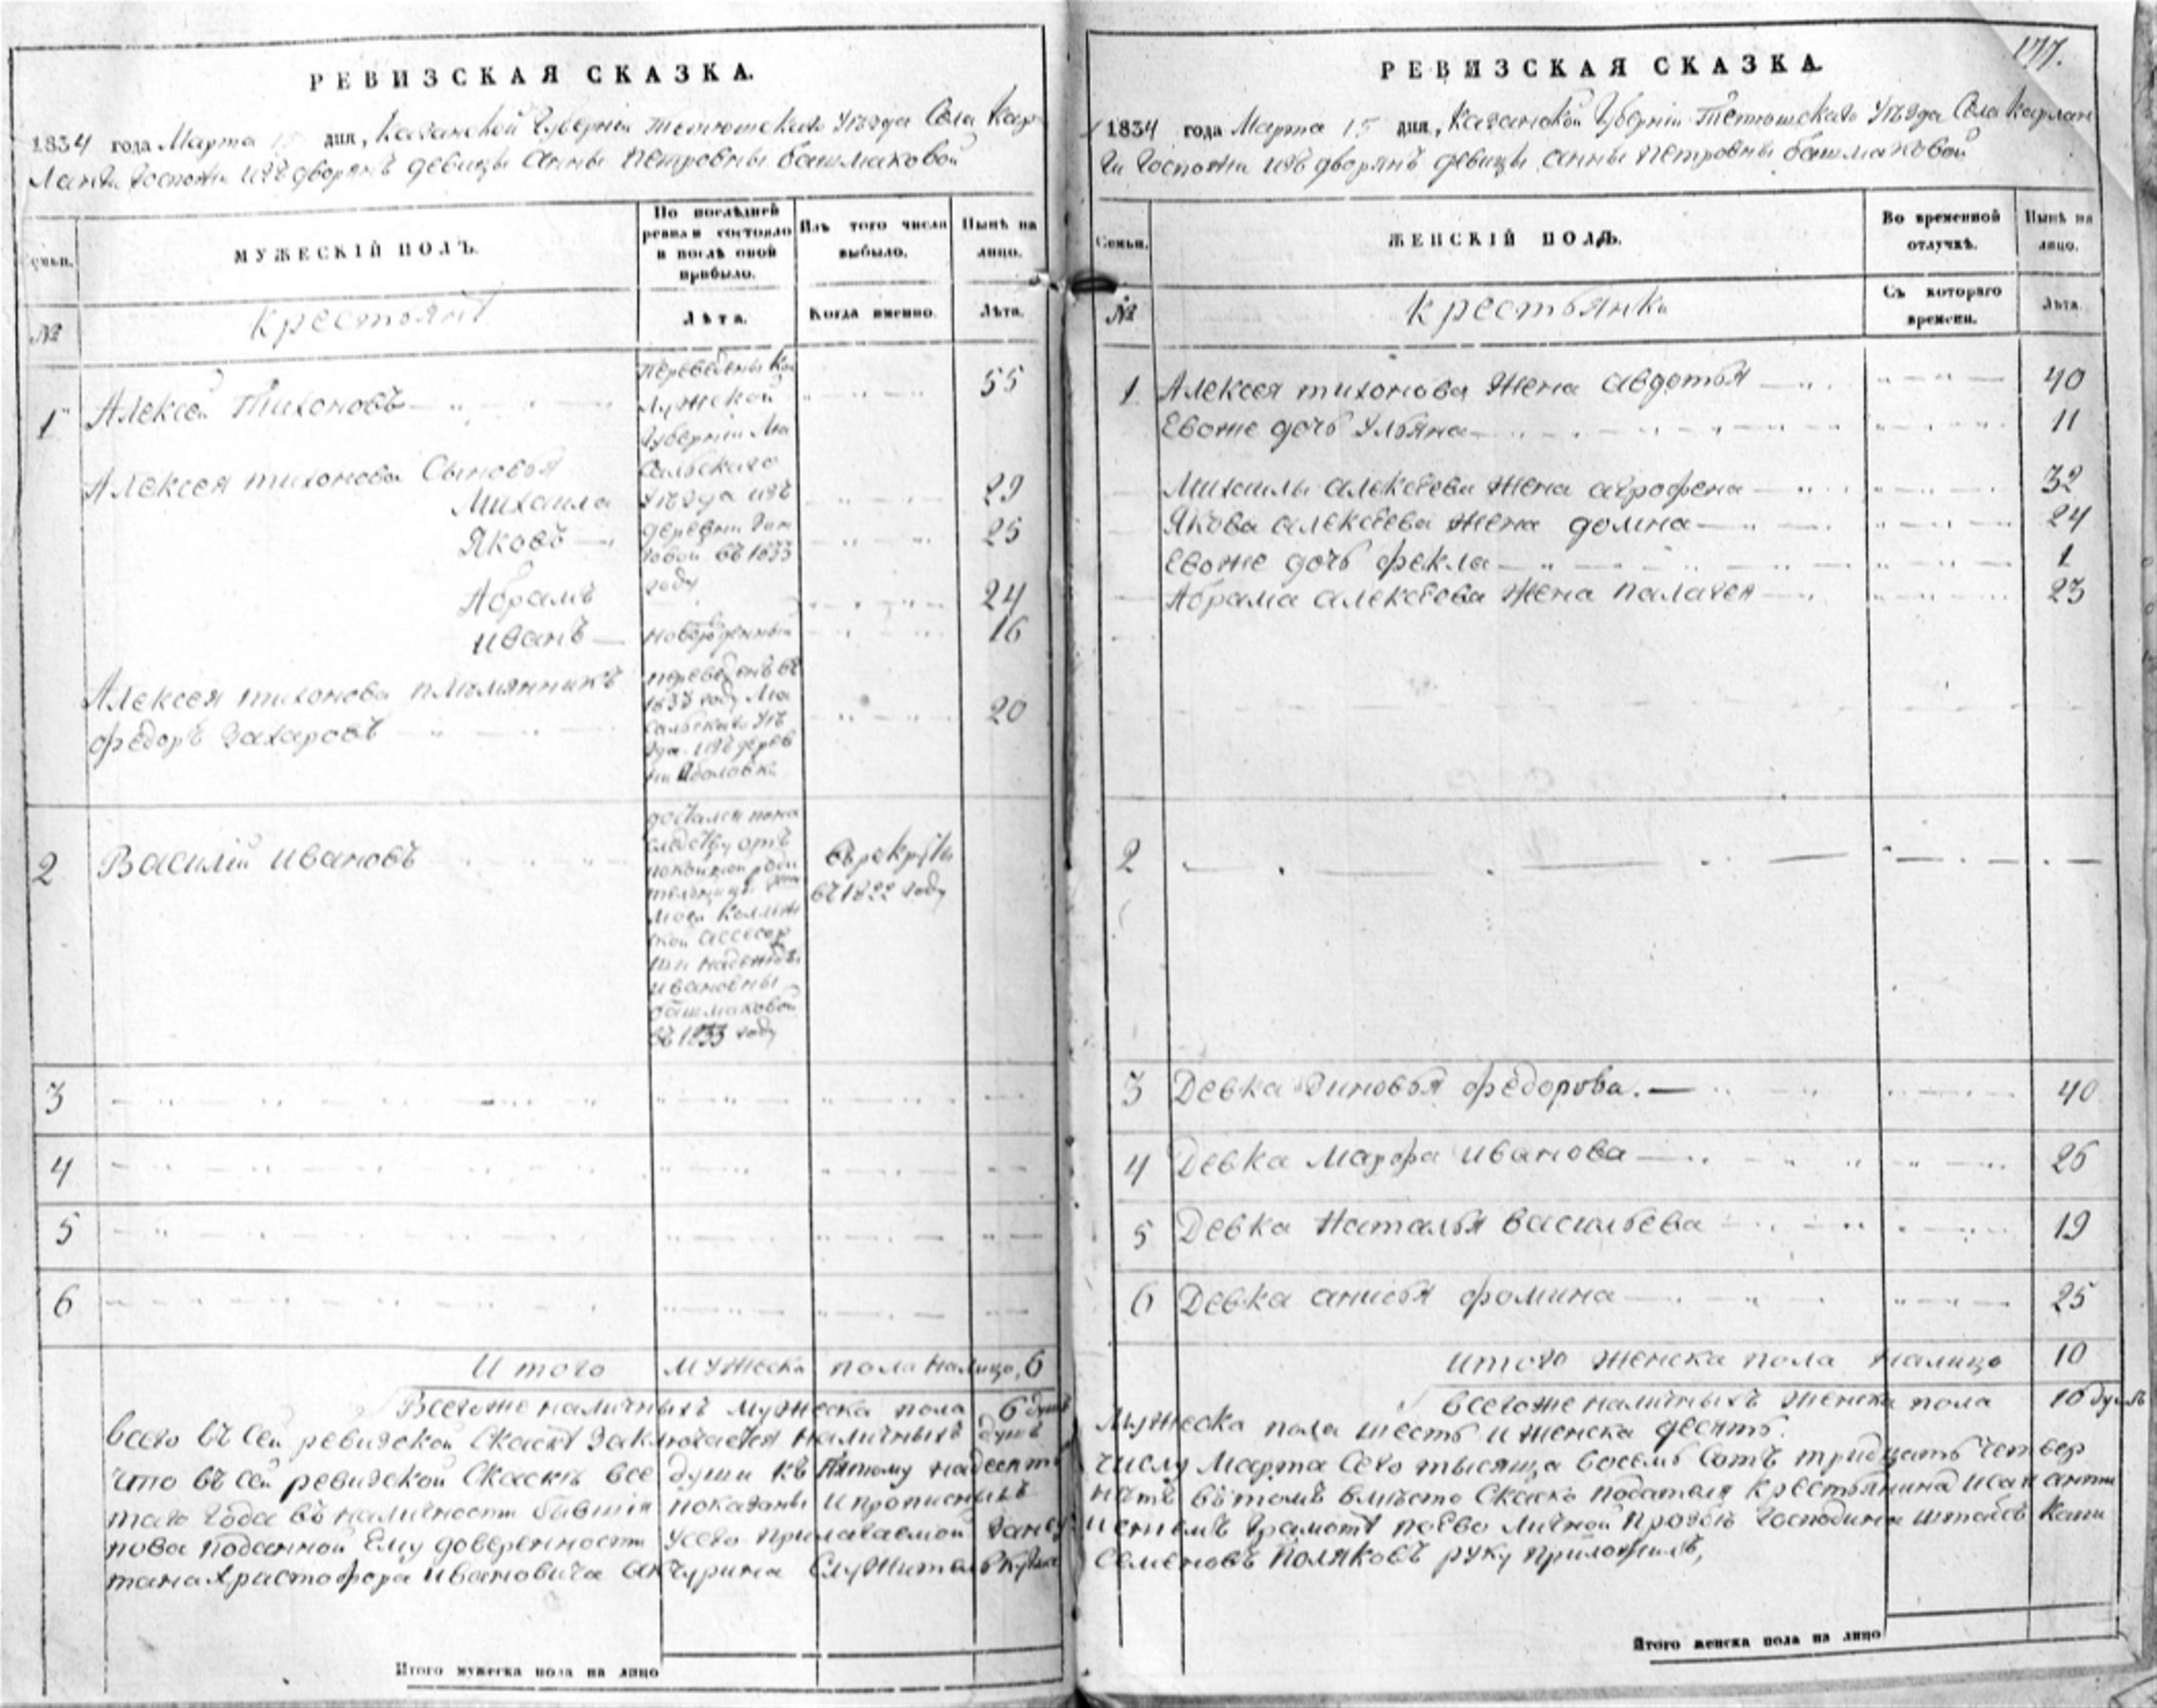 РЕВИЗСКАЯ СКАЗКА.
1834 года Марта 15 дня, Казанской Губернiи Тетюшскаго Уѣзда Села Кар
ланги Госпожи изъ дворянъ девицы Анны Петровны башмаковой
Семьи.
МУЖЕСКIЙ ПОЛЪ.
По послѣдней ревизiи состояло и послѣ оной прибыло.
Изъ того числа выбыло.
Нынѣ на лицо.
№
крестьянъ
Лѣта.
Когда именно.
Лѣта.
1 Алексей Тихоновъ 55
переведены Ка
лужской
Губернiи Мо
сальскаго
Уѣзда изъ
деревни
въ 1833
году
Алексея тихонова Сыновья
Михаила 29
Яковъ 25
Абрамъ 24
иванъ новорожденный 16
Алексея тихонова племянникъ
федоръ Захаровъ 20
переведенъ въ
1833 году Мо
сальскаго Уѣ
зда изъ дерев
ни
2 Василiй ивановъ
достался по на
следству отъ
покойной роди
тельницы
моей коллеж
ской ассесор
ши надежды
ивановны
башмаковой
въ 1833 году
въ рекруты
въ 1822 году
3
4
5
6
Итого мужеска пола налицо, 6
Всегоже наличныхъ мужеска пола 6 душъ
всего въ сей ревизской Скаске Заключается наличныхъ душъ
что въ сей ревизской Скаскѣ все души къ пятому надесять
таго Года въ наличности бывшiя показаны и прописныхъ
пова поданной Ему доверенности Усего прилагаемой
тана христофора ивановича Служитель
Итого мужеска пола на лицо
177.
РЕВИЗСКАЯ СКАЗКА.
1834 года Марта 15 дня, Казанской Губернiи Тетюшскаго Уѣзда Села Карлан
ги Госпожи изъ дворянъ девицы анны петровны башмаковой
Семьи.
ЖЕНСКIЙ ПОЛЪ.
Во временной отлучкѣ.
Нынѣ на лицо.
№
крестьянки
Съ котораго времени.
Лѣта.
1 Алексея тихонова жена авдотья 40
Евоже дочь Ульяна 11
Михаилы алексеева жена агрофена 32
Якова алексеева жена домна 24
Евоже дочь фекла 1
Абрама алексеева жена палагея 23
2
3 Девка Зиновья федорова. 40
4 Девка Марфа иванова 26
5 Девка Наталья васильева 19
6 Девка анисья фомина 25
итого женска пола налицо 10
всегоже наличныхъ женска пола 10 душъ
Мужеска пола шесть и женска десять.
числу Марта Сего тысяща восемь Сотъ тридцать четвер
нѣтъ вътомъ вмѣсто Скаско подателя крестьянина исая анти
Грамоте поево личной прозьбе Господина штабсъ капи
Семеновъ Поляковъ руку приложилъ,
Итого женска пола на лицо